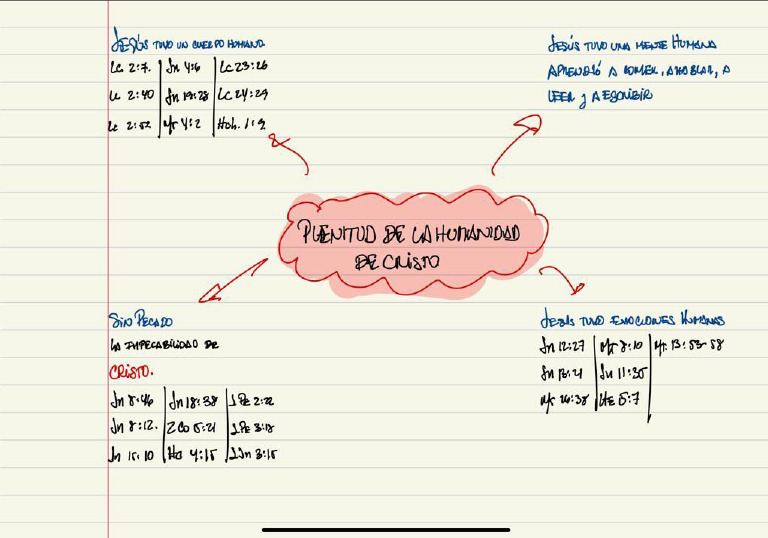 JESÚS TUVO UN CUERPO HUMANO
Lc 2:7. Jn 4:6 Lc 23:26
Lc 2:40 Jn 19:28 Lc 24:29
Lc 2:52 Mt 4:2 Heb. 1:9
JESÚS TUVO UNA MENTE HUMANA
APRENDIÓ A COMER, A HABLAR, A
LEER y A ESCRIBIR
PLENITUD DE LA HUMANIDAD
DE CRISTO
SIN PECADO
LA IMPECABILIDAD DE
CRISTO.
Jn 8:46 Jn 18:38 1 Pe 2:22
Jn 8:12. 2 Co 5:21 1 Pe 3:18
Jn 15:10 Hb 4:15 1 Jn 3:15
JESÚS TUVO EMOCIONES HUMANAS
Jn 12:27 Mt 8:10 Mt. 13:53-58
Jn 13:21 Jn 11:35
Mt 26:38 He 5:7